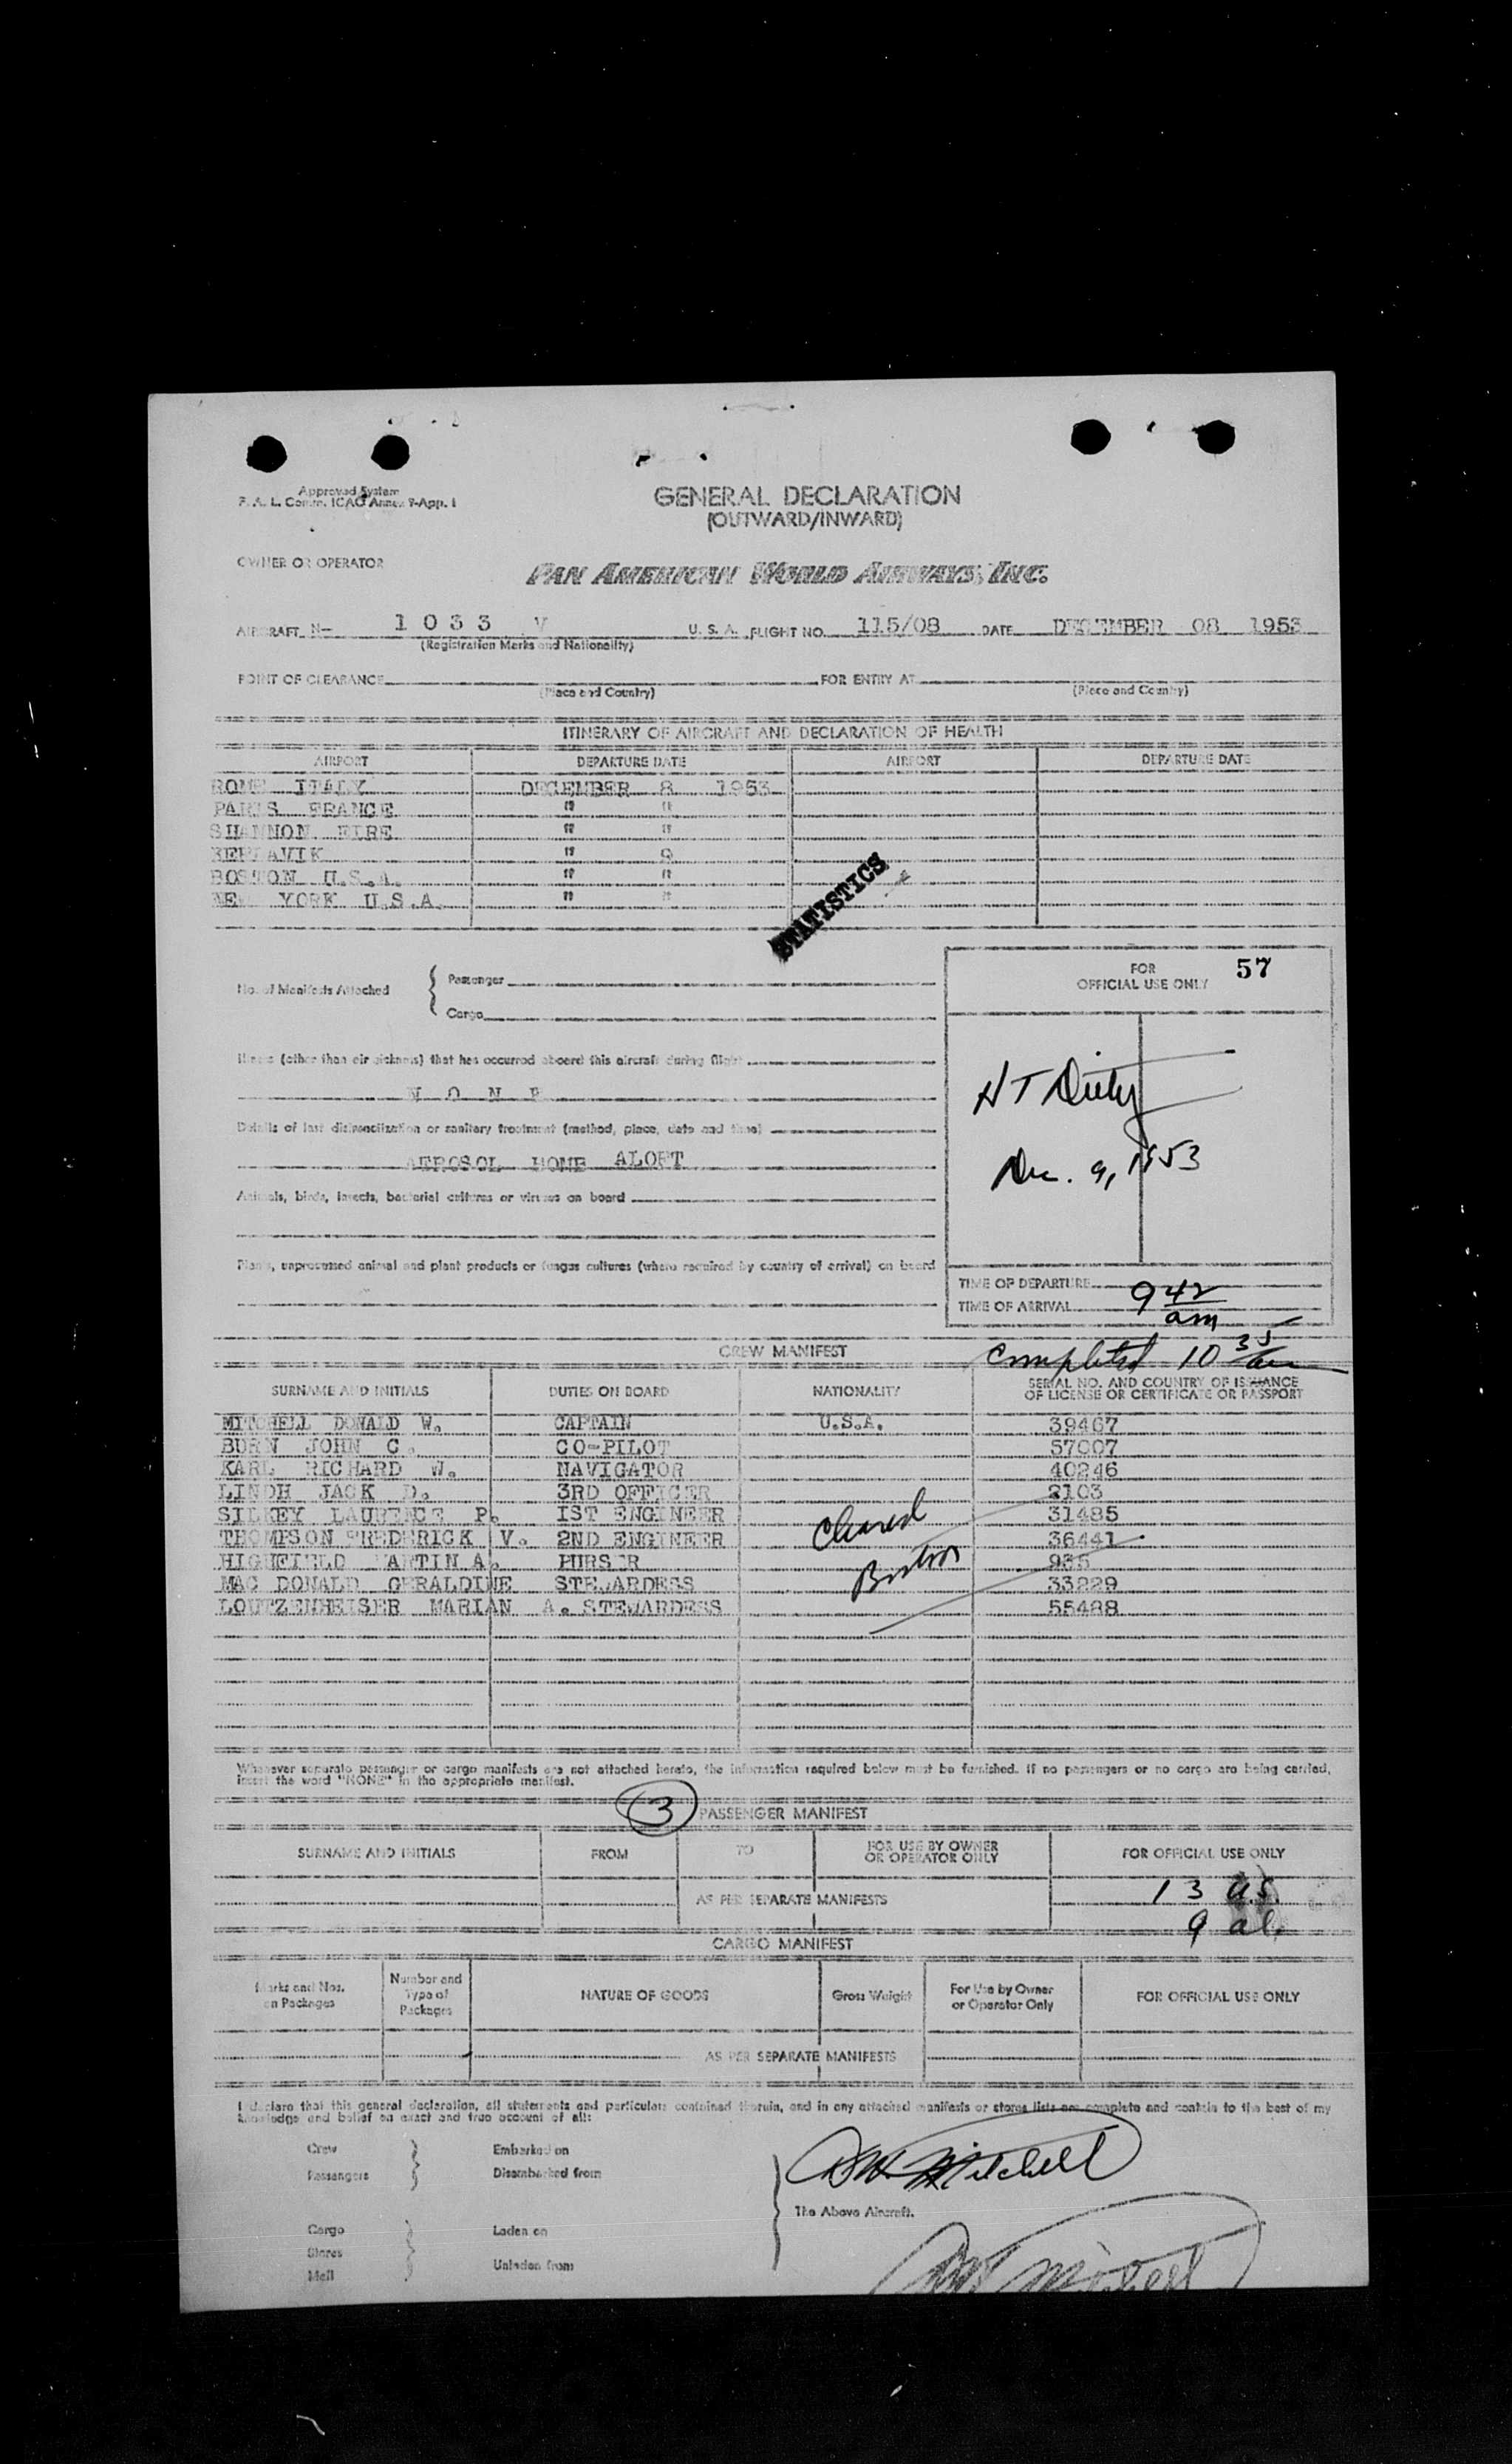 Approved System
F. A. L. Comm. ICAO Annex 9-App. 1
GENERAL DECLARATION
(OUTWARD/INWARD)
OWNER OR OPERATOR
PAN AMERICAN WORLD AIRWAYS, INC.
AIRCRAFT N- 1 0 3 3 V U. S. A. FLIGHT NO. 115/08 DATE DECEMBER 08 1953
(Registration Marks and Nationality)
POINT OF CLEARANCE FOR ENTRY AT
(Place and Country) (Place and Country)
ITINERARY OF AIRCRAFT AND DECLARATION OF HEALTH
AIRPORT DEPARTURE DATE AIRPORT DEPARTURE DATE
ROME ITALY DECEMBER 8 1953
PARIS FRANCE " "
SHANNON EIRE " "
KEFLAVIK " 9
BOSTON U.S.A. " "
NEW YORK U.S.A. " "
STATISTICS
FOR OFFICIAL USE ONLY 57
No. of Manifests Attached { Passenger
Cargo
Illness (other than air sickness) that has occurred aboard this aircraft during flight
N O N E
Details of last disinsectization or sanitary treatment (method, place, date and time)
AEROSOL BOMB ALOFT
Animals, birds, insects, bacterial cultures or viruses on board
Plants, unprocessed animal and plant products or fungus cultures (where required by country of arrival) on board
Dec. 9, 1953
TIME OF DEPARTURE
TIME OF ARRIVAL 9 42 am
CREW MANIFEST
completed 10 35 am
SURNAME AND INITIALS DUTIES ON BOARD NATIONALITY SERIAL NO. AND COUNTRY OF ISSUANCE OF LICENSE OR CERTIFICATE OR PASSPORT
MITCHELL DONALD W. CAPTAIN U.S.A. 39467
BURN JOHN C. CO-PILOT 57007
KARL RICHARD W. NAVIGATOR 40246
LINDH JACK D. 3RD OFFICER 2103
SILKEY LAURENCE P. IST ENGINEER 31485
THOMPSON FREDERICK V. 2ND ENGINEER 36441
HIGHFIELD MARTIN A. PURSER 935
MAC DONALD GERALDINE STEWARDESS 33229
LOUTZENHEISER MARIAN A. STEWARDESS 55488
Cleared
Boston
Whenever separate passenger or cargo manifests are not attached hereto, the information required below must be furnished. If no passengers or no cargo are being carried,
insert the word "NONE" in the appropriate manifest.
3 PASSENGER MANIFEST
SURNAME AND INITIALS FROM TO FOR USE BY OWNER OR OPERATOR ONLY FOR OFFICIAL USE ONLY
AS PER SEPARATE MANIFESTS
13 U.S.
9 al.
CARGO MANIFEST
Marks and Nos. on Packages Number and Type of Packages NATURE OF GOODS Gross Weight For Use by Owner or Operator Only FOR OFFICIAL USE ONLY
AS PER SEPARATE MANIFESTS
I declare that this general declaration, all statements and particulars contained therein, and in any attached manifests or stores lists are complete and contain to the best of my
knowledge and belief an exact and true account of all:
Crew Embarked on
Passengers Disembarked from
DW Mitchell
The Above Aircraft.
Cargo Laden on
Stores
Mail Unladen from
DW Mitchell